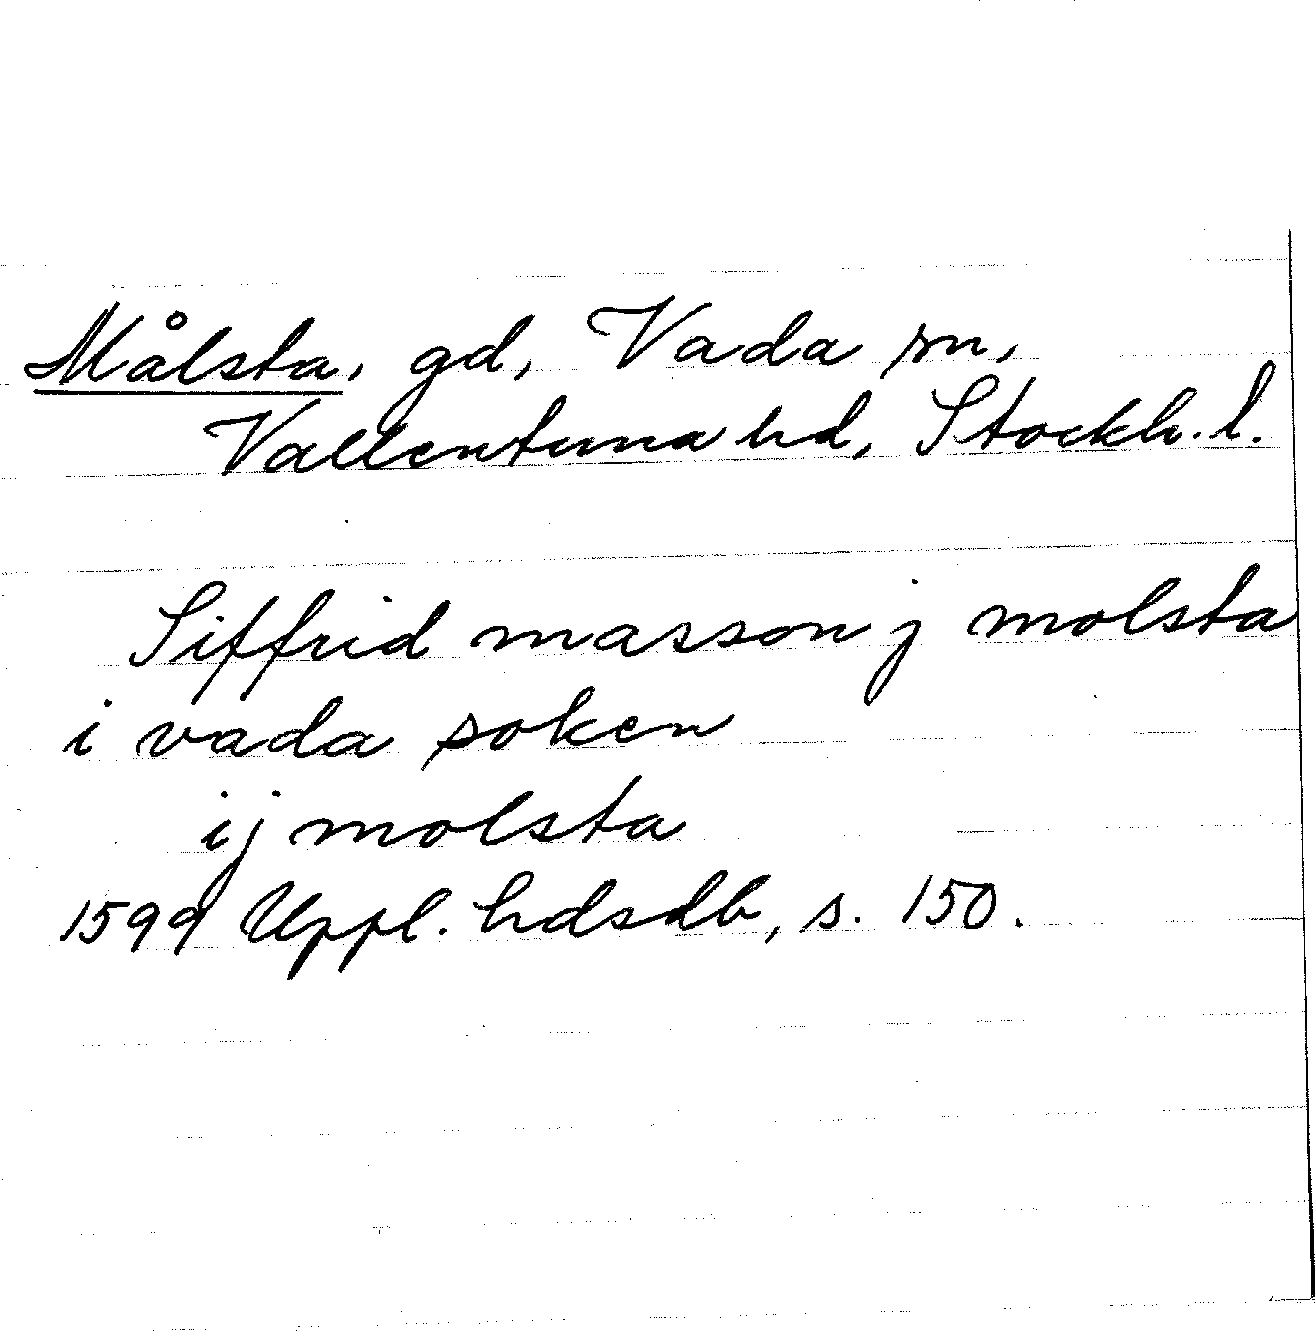 Målsta, gd, Vada sn,
Vallentuna hd, Stockh. l.
Siffrid masson j molsta
i vada soken
ij molsta
1599 Uppl. hdsdb, s. 150.